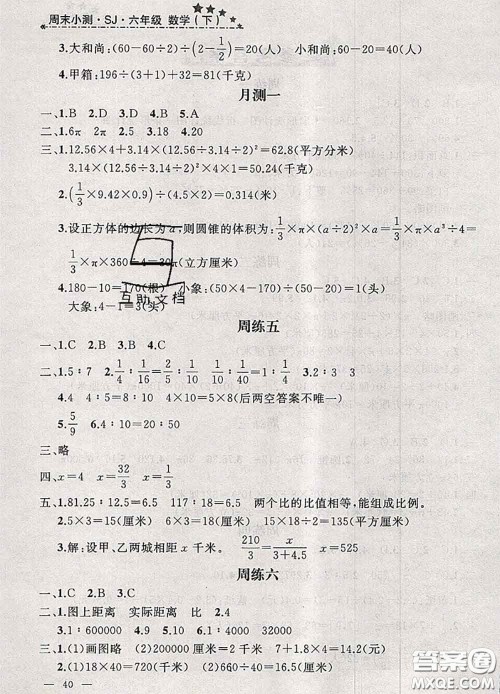 周末小测·SJ·六年级 数学(下)
3.大和尚:(60-60÷2)÷(2-1/2)=20(人) 小和尚:60-20=40(人)
4.甲箱:196÷(3+1)+32=81(千克)
月测一
一、1.B 2.D 3.D 4.B 5.A
二、1.6π 2π 2.5 3.18 4.20
三、1.12.56×4+3.14×(12.56÷3.14÷2)²=62.8(平方分米)
3.14×(12.56÷3.14÷2)²×4×1=50.24(千克)
2.(1/3×9.42×0.9)÷(4.5×2)=0.314(米)
3.设正方体的边长为a,则圆锥的体积为:1/3×π×(a÷2)²×a=1/3×π×a³÷4=
1/3×π×360÷4=30π(立方厘米)
4.180-10=170(根) 小象:(50×4-170)÷(50-20)=1(头)
大象:4-1=3(头)
互助文档
周练五
一、1.C 2.B 3.C 4.B
二、1.5∶7 2.1/4∶1/16=1/2∶1/8 1/40∶1/10=1/4∶1 3.2∶3 3
4.4 4∶5=8∶10 4×10=5×8(后两空答案不唯一)
5.5/9 6.4∶10=20∶50
三、略
四、x=4 x=32/3 x=1/3
五、1.81.25∶12.5=6.5 117∶18=6.5 两个比的比值相等,能组成比例。
2.5×3=15(厘米) 6×3=18(厘米) 15×18÷2=135(平方厘米)
3.解:设甲、乙两城相距x千米。210/3=x/(3+4.5) x=525
周练六
一、1.C 2.B 3.C
二、1.图上距离 实际距离 比 2.4
3.1∶600000 4.320 5.1∶2000000
三、1.(1)画图略 (2)(4×1.8)÷2+7+1.8×4=14.2(元)
2.(1)18×40=720(千米) (2)660÷40=16.5(厘米)
— 40 —
答案圈
MXQE.COM